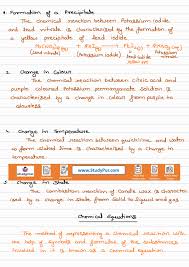 Formation of a Precipitate
The chemical reaction between Potassium Iodide
and lead nitrate is characterized by the formation of
a yellow precipitate of lead iodide
Change in Colour
The chemical reaction between citric acid and
purple coloured Potassium permanganate Solution is
characterized by a change in colour from purple to
colourless
Change in Temperature
The chemical reaction between quicklime and water
to form slaked lime is characterized by a change in
temperature.
www.StudyPur.com
Change in State
The combustion reaction of Candle wax is characterised
by a change in State from Solid to Liquid and gas
Chemical Equations
The method of representing a chemical reaction with
the help of Symbols and formulae of the substances
involved in it is known as a chemical equation.